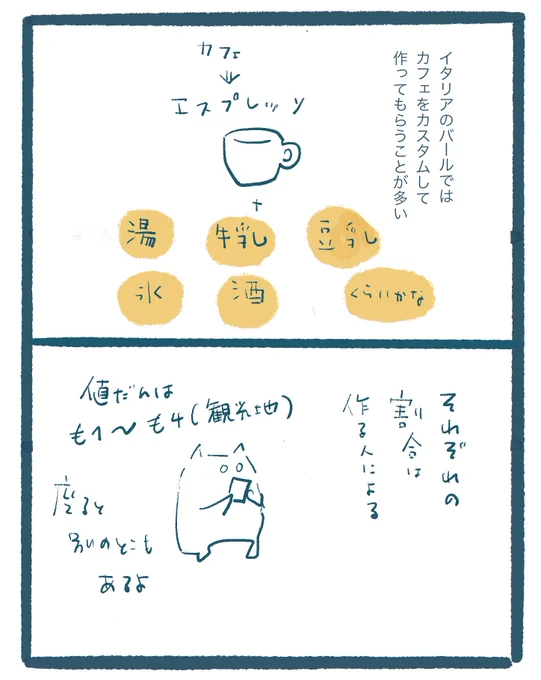 イタリアのバールでは
カフェをカスタムして
作ってもらうことが多い
カフェ
エスプレッソ
+
湯
牛乳
豆乳
氷
酒
くらいかな
それぞれの
割合は
作る人による
値だんは
€1〜€4(観光地)
座ると
別のとこも
あるよ